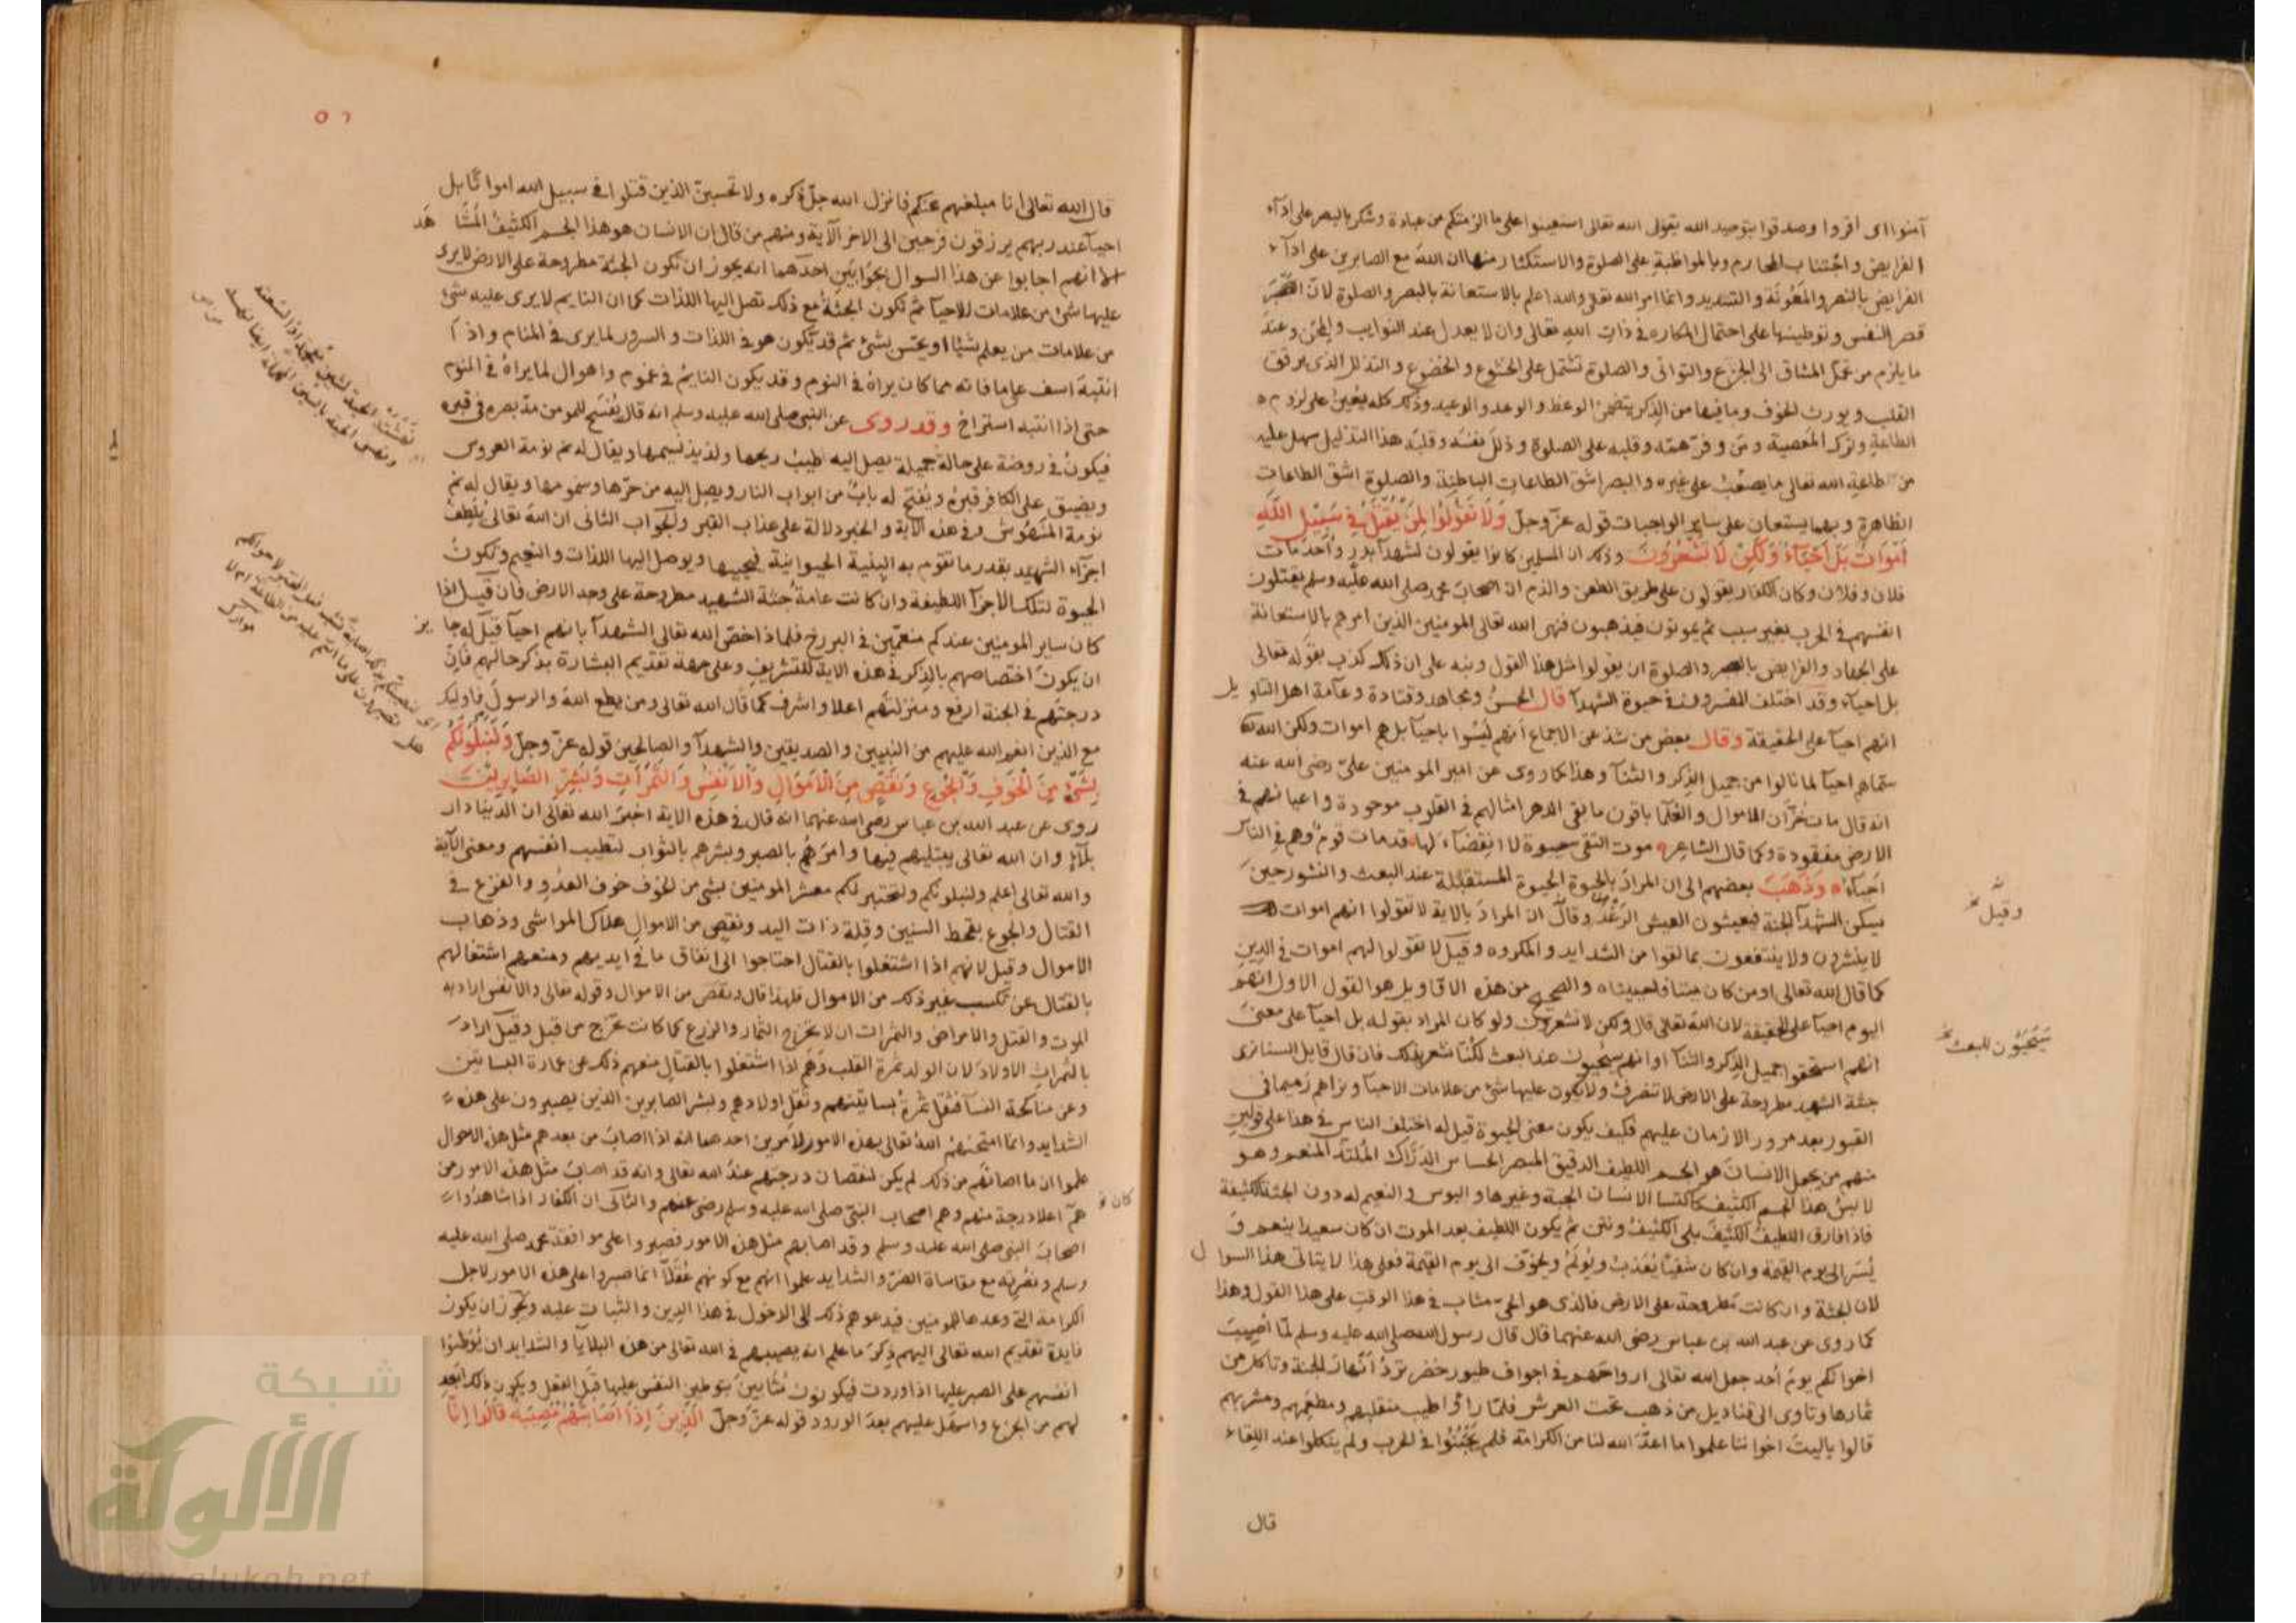 آمنوا اى اقروا وصدقوا بتوحيد الله يقول الله تعالى استعينوا على ما الزمتكم من عبادة وشكر بالصبر على ادآء
الفرايض واجتناب المحارم وبالمواظبة على الصلوة والاستكثار منها ان الله مع الصابرين على ادآء
الفرايض بالنصر والمعونة والتسديد وانما امر الله تعالى والله اعلم بالاستعانة بالصبر والصلوة لان الصبر
قصر النفس وتوطينها على احتمال المكاره في ذات الله تعالى وان لا يعدل عند النوايب والمحن وعند
ما يلزم من عمل المشاق الى الجزع والتوانى والصلوة تشتمل على الخشوع والخضوع والتذلل الذى يرقق
القلب ويورث الخوف وما فيها من الذكر يتضمن الوعظ والوعد والوعيد وذلك كله يعين على لزوم
الطاعة وترك المعصية ومن وفر همه وقلبه على الصلوة وذلل نفسه وقلبه هذا التذليل سهل عليه
من طاعة الله تعالى ما يصعب على غيره والصبر اشق الطاعات الباطنة والصلوة اشق الطاعات
الظاهرة وبهما يستعان على ساير الواجبات قوله عز وجل وَلَا تَقُولُوا لِمَنْ يُقْتَلُ فِي سَبِيلِ اللَّهِ
أَمْوَاتٌ بَلْ أَحْيَآءٌ وَلَكِنْ لَا تَشْعُرُونَ وذلك ان المسلمين كانوا يقولون لشهدآ بدر واحد مات
فلان وفلان وكان الكفار يقولون على طريق الطعن والذم ان اصحاب محمد صلى الله عليه وسلم يقتلون
انفسهم في الحرب بغير سبب ثم يموتون فيذهبون فنهى الله تعالى المومنين الذين امرهم بالاستعانة
على الجهاد والفرايض بالصبر والصلوة ان يقولوا مثل هذا القول ونبه على ان ذلك كذب بقوله تعالى
بل احيآء وقد اختلف المفسرون في حيوة الشهدآ قال الحسن ومجاهد وقتادة وعآمة اهل التاويل
انهم احيآ على الحقيقة وقال بعض من شذ عن الاجماع انهم ليسوا باحيآ بل هم اموات ولكن الله
سماهم احيآ لما نالوا من جميل الذكر والثنآ وهذا كما روى عن امير المومنين على رضى الله عنه
انه قال مات خزان الاموال والعلما باقون ما بقى الدهر امثالهم في القلوب موجودة واعيانهم في
الارض مفقودة وكما قال الشاعر موت التقى حيوة لا انقضاء لها قد مات قوم وهم في الناس
احياء وذهب بعضهم الى ان المراد بالحيوة الحيوة المستقبلة عند البعث والنشور حين
يسكن الشهدآ الجنة فيعيشون العيش الرغد وقال ان المراد بالاية لا تقولوا انهم اموات
لا ينشرون ولا ينتفعون بما لقوا من الشدايد والمكروه وقيل لا تقولوا لهم اموات في الدين
كما قال الله تعالى اومن كان ميتا فاحييناه والصحيح من هذه الاقاويل هو القول الاول انهم
اليوم احيآ على الحقيقة لان الله تعالى قال ولكن لا تشعرون ولو كان المراد بقوله بل احيآ على معنى
انهم استحقوا جميل الذكر والثنآ او انهم سيحيون عند البعث لكنا نشعر بذلك فان قال قايل السنا نرى
جثة الشهيد مطروحة على الارض لا تتصرف ولا يكون عليها شئ من علامات الاحيآ ونراهم رميما في
القبور بعد مرور الازمان عليهم فكيف يكون معنى الحيوة قيل له اختلف الناس في هذا على قولين
منهم من يجعل الانسان هو الجسم اللطيف الدقيق المبصر الحساس الدراك الملتذ المنعم وهو
لابس هذا الجسم الكثيف كاكتسا الانسان الجبة وغيرها والبوس والنعيم له دون الجثة الكثيفة
فاذا فارق اللطيف الكثيف بلى الكثيف ونتن ثم يكون اللطيف بعد الموت ان كان سعيدا ينعم و
يسر الى يوم القيمة وان كان شقيا يعذب ويولم ويخوف الى يوم القيمة فعلى هذا لا يتاتى هذا السوال
لان الجثة وان كانت مطروحة على الارض فالذى هو الحى مثاب في هذا الوقت على هذا القول وهذا
كما روى عن عبد الله بن عباس رضى الله عنهما قال قال رسول الله صلى الله عليه وسلم لما اصيب
اخوانكم يوم احد جعل الله تعالى ارواحهم في اجواف طيور خضر ترد انهار الجنة وتاكل من
ثمارها وتاوى الى قناديل من ذهب تحت العرش فلما راوا طيب منقلبهم ومطعمهم ومشربهم
قالوا ياليت اخواننا علموا ما اعد الله لنا من الكرامة فلم يجبنوا في الحرب ولم ينكلوا عند اللقاء
قال
وقيل
سيحيون للبعث
٥٦
قال الله تعالى انا مبلغهم عنكم فانزل الله جل ذكره ولا تحسبن الذين قتلوا في سبيل الله امواتا بل
احيآ عند ربهم يرزقون فرحين الى اخر الآية ومنهم من قال ان الانسان هو هذا الجسم الكثيف المشاهد
الا انهم اجابوا عن هذا السوال بجوابين احدهما انه يجوز ان تكون الجثة مطروحة على الارض لا يرى
عليها شئ من علامات الاحيآ ثم تكون الجثة مع ذلك تصل اليها اللذات كما ان النايم لا يرى عليه شئ
من علامات من يعلم شيئا او يحس بشئ ثم قد يكون هو في اللذات والسرور لما يرى في المنام واذا
انتبه اسف على ما فاته مما كان يراه في النوم وقد يكون النايم في غموم واهوال لما يراه في النوم
حتى اذا انتبه استراح وقد روى عن النبى صلى الله عليه وسلم انه قال يفسح للمومن مد بصره في قبره
فيكون في روضة على حالة جميلة يصل اليه طيب ريحها ولذيذ نسيمها ويقال له نم نومة العروس
ويضيق على الكافر قبره ويفتح له باب من ابواب النار ويصل اليه من حرها وسمومها ويقال له نم
نومة المنهوش وفي هذه الآية والخبر دلالة على عذاب القبر والجواب الثانى ان الله تعالى يلطف
اجزآء الشهيد بقدر ما تقوم به البنية الحيوانية فيحييها ويوصل اليها اللذات والنعيم وتكون
الحيوة لتلك الاجزآ اللطيفة وان كانت عامة جثة الشهيد مطروحة على وجه الارض فان قيل اذا
كان ساير المومنين عندكم منعمين في البرزخ فلماذا خص الله تعالى الشهدآ بانهم احيآ قيل له جايز
ان يكون اختصاصهم بالذكر في هذه الاية للتشريف وعلى جهة تقديم البشارة بذكر حالهم فان
درجتهم في الجنة ارفع ومنزلتهم اعلا واشرف كما قال الله تعالى ومن يطع الله والرسول فاوليك
مع الذين انعم الله عليهم من النبيين والصديقين والشهدآ والصالحين قوله عز وجل وَلَنَبْلُوَنَّكُمْ
بِشَيْءٍ مِنَ الْخَوْفِ وَالْجُوعِ وَنَقْصٍ مِنَ الْأَمْوَالِ وَالْأَنْفُسِ وَالثَّمَرَاتِ وَبَشِّرِ الصَّابِرِينَ
روى عن عبد الله بن عباس رضى الله عنهما انه قال في هذه الاية اخبر الله تعالى ان الدنيا دار
بلآء وان الله تعالى يبتليهم فيها وامرهم بالصبر وبشرهم بالثواب لتطيب انفسهم ومعنى الآية
والله تعالى اعلم ولنبلونكم ولنختبرنكم معشر المومنين بشئ من الخوف خوف العدو والفزع في
القتال والجوع بقحط السنين وقلة ذات اليد ونقص من الاموال هلاك المواشى وذهاب
الاموال وقيل لانهم اذا اشتغلوا بالقتال احتاجوا الى انفاق ما في ايديهم ومنعهم اشتغالهم
بالقتال عن تكسب غير ذلك من الاموال فلهذا قال ونقص من الاموال وقوله تعالى والانفس اراد به
الموت والقتل والامراض والثمرات ان لا تخرج الثمار والزرع كما كانت تخرج من قبل وقيل اراد
بالثمرات الاولاد لان الولد ثمرة القلب وهم اذا اشتغلوا بالقتال منعهم ذلك عن عمارة البساتين
وعن مناكحة النسآ فتقل ثمرة بساتينهم وتقل اولادهم وبشر الصابرين الذين يصبرون على هذه
الشدايد وانما امتحنهم الله تعالى بهذه الامور لامرين احدهما انه اذا اصاب من بعدهم مثل هذه الاحوال
علموا ان ما اصابهم من ذلك لم يكن لنقصان درجتهم عند الله تعالى وانه قد اصاب مثل هذه الامور من
هم اعلا درجة منهم وهم اصحاب النبى صلى الله عليه وسلم رضى عنهم والثانى ان الكفار اذا شاهدوا
اصحاب النبى صلى الله عليه وسلم وقد اصابهم مثل هذه الامور فصبروا على موافقة محمد صلى الله عليه
وسلم ونصرته مع مقاساة الضر والشدايد علموا انهم مع كونهم عقلآ انما صبروا على هذه الامور لاجل
الكرامة التى وعدها للمومنين فيدعوهم ذلك الى الدخول في هذا الدين والثبات عليه ويجوز ان يكون
فايدة تقديم الله تعالى اليهم ذكر ما علم انه يصيبهم في الله تعالى من هذه البلايا والشدايد ان يوطنوا
انفسهم على الصبر عليها اذا وردت فيكونون مثابين بتوطين النفس عليها قبل الفعل ويكون ذلك ابعد
لهم من الجزع واسهل عليهم بعد الورود قوله عز وجل الَّذِينَ إِذَا أَصَابَتْهُمْ مُصِيبَةٌ قَالُوا إِنَّا
كان
شبكة
الألوكة
www.alukah.net